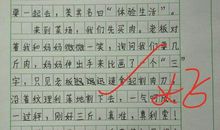 要一起去，美其名曰“体验生活”。
来到菜场，我们先买肉。老板对
着我和妈妈微微一笑，询问我们要几
斤肉，妈妈伸出手指比了个“三”
字，只见老板迅速拿起割肉刀，
沿着纹理利落地割下去，一气呵成，
一过秤，刚好三斤，真准，真利索！